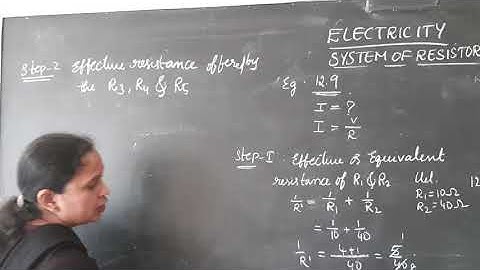 ELECTRICITY
SYSTEM OF RESISTOR
Step-2 Effective resistance offered by
the R3, R4 & R5
Eg. 12.9
I = ?
I = V/R
Step-I Effective or Equivalent
resistance of R1 & R2
1/R' = 1/R1 + 1/R2
= 1/10 + 1/40
1/R' = 4+1/40 = 5/40
1
R1 = 10Ω
R2 = 40Ω